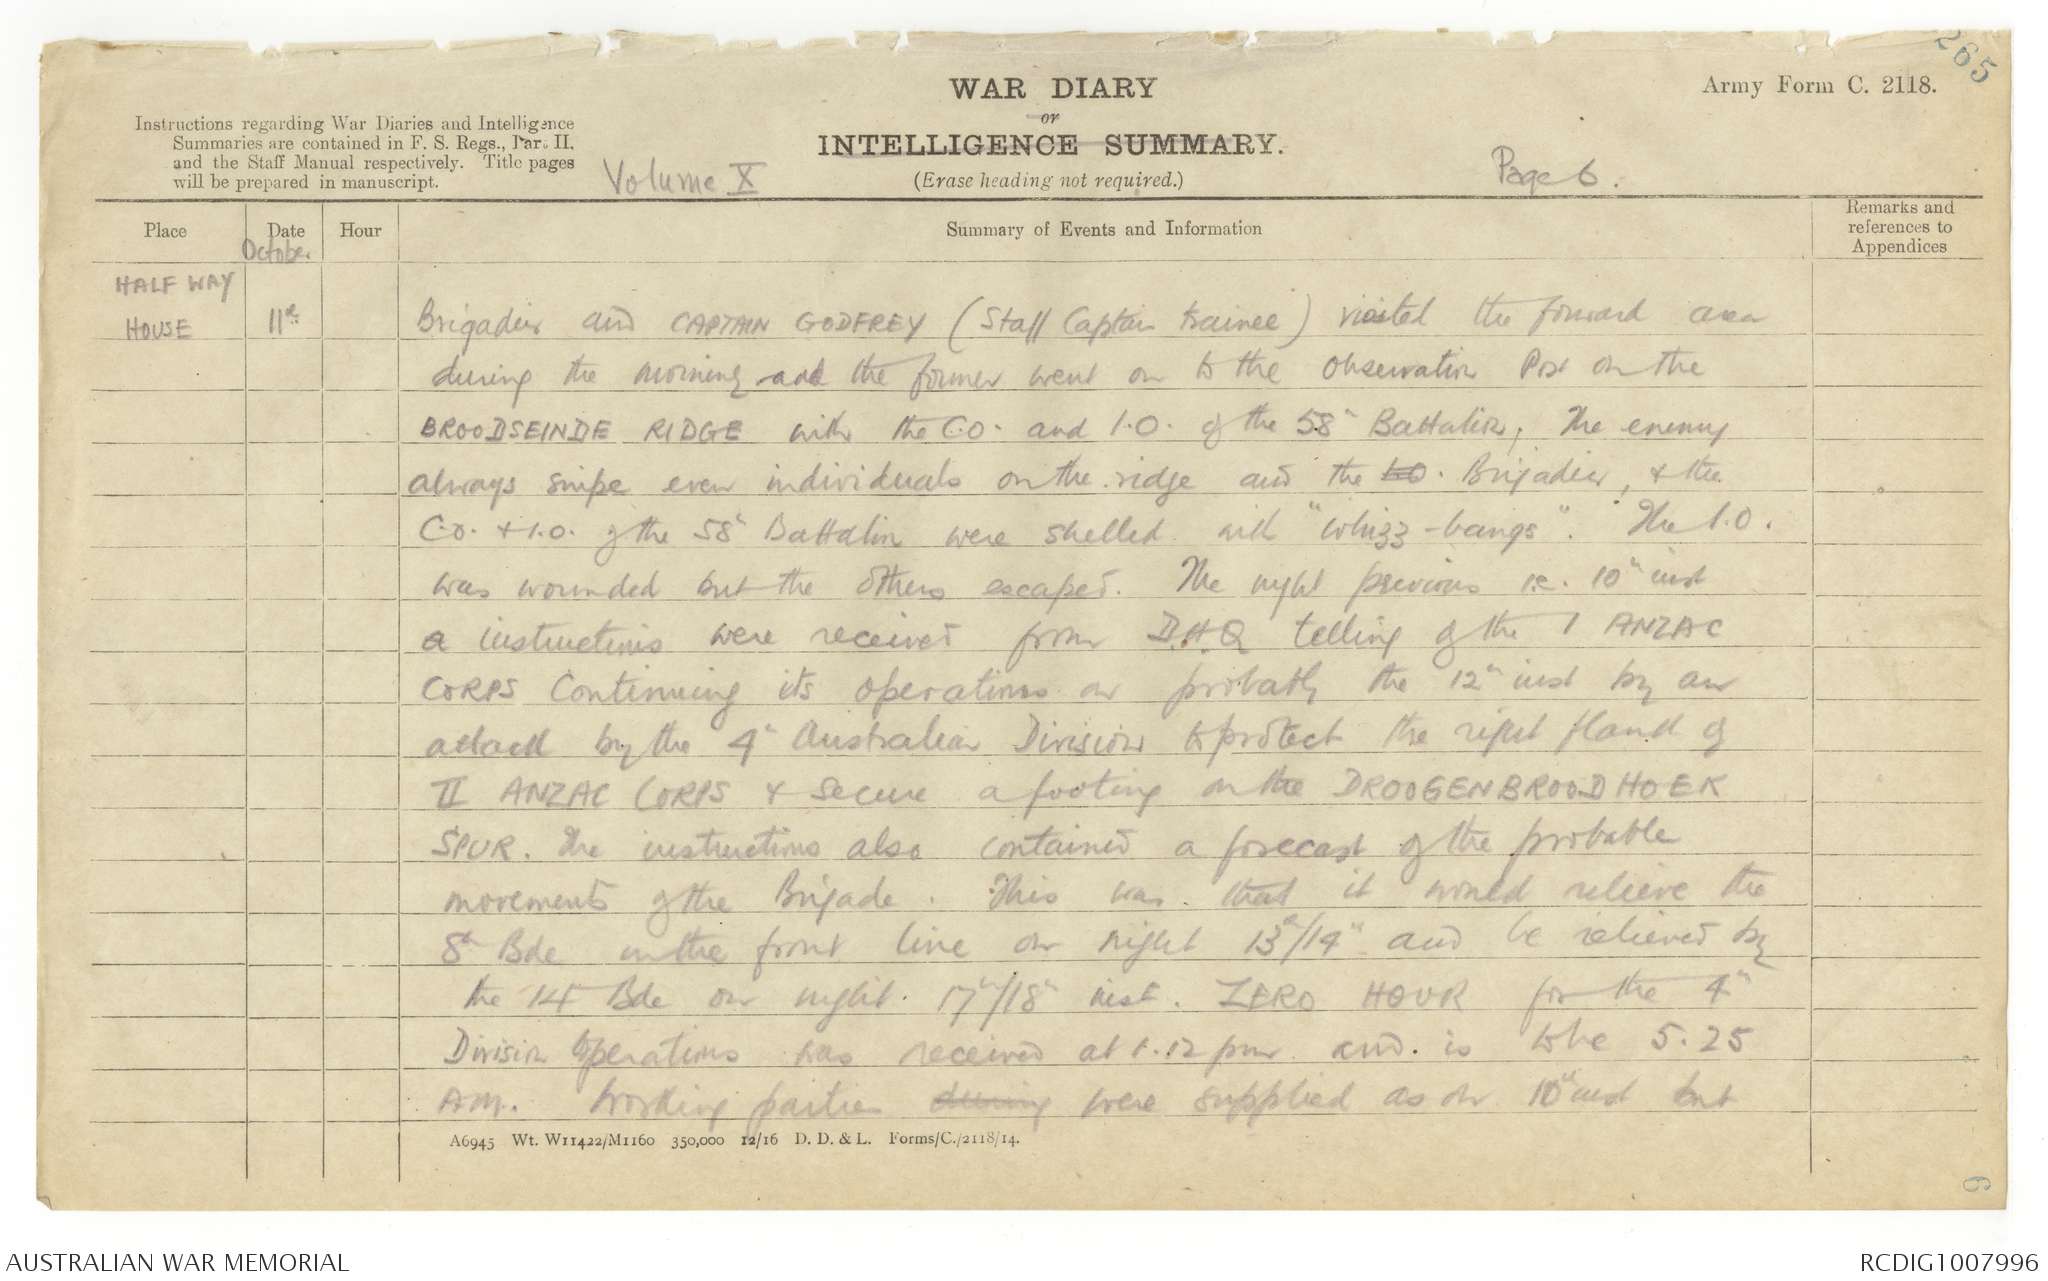 265
WAR DIARY
or
INTELLIGENCE SUMMARY.
(Erase heading not required.)
Army Form C. 2118.
Instructions regarding War Diaries and Intelligence
Summaries are contained in F. S. Regs., Part II.
and the Staff Manual respectively. Title pages
will be prepared in manuscript.
Volume X
Page 6.
Place Date Hour Summary of Events and Information Remarks and references to Appendices
October
HALF WAY
HOUSE 11th Brigadier and CAPTAIN GODFREY (Staff Captain trainee) visited the forward area
during the morning and the former went on to the Observation Post on the
BROODSEINDE RIDGE with the C.O. and I.O. of the 58th Battalion, The enemy
always snipe even individuals on the ridge and the Brigadier, & the
C.O. & I.O. of the 58th Battalion were shelled with "whizz-bangs". The I.O.
was wounded but the others escaped. The night previous i.e. 10th inst
a instructions were received from D.H.Q telling of the 1 ANZAC
CORPS Continuing its operations on probably the 12th inst by an
attack by the 4th Australian Division to protect the right flank of
II ANZAC CORPS & secure a footing on the DROOGENBROODHOEK
SPUR. The instructions also contained a forecast of the probable
movements of the Brigade. This was that it would relieve the
8th Bde in the front line on night 13th/14th and be relieved by
the 14 Bde on night 17th/18th inst. ZERO HOUR for the 4th
Division Operations was received at 1.12 pm and is to be 5.25
AM. Working parties during were supplied as on 10th inst but
A6945 Wt. W11422/M1160 350,000 12/16 D. D. & L. Forms/C./2118/14.
6
AUSTRALIAN WAR MEMORIAL
RCDIG1007996